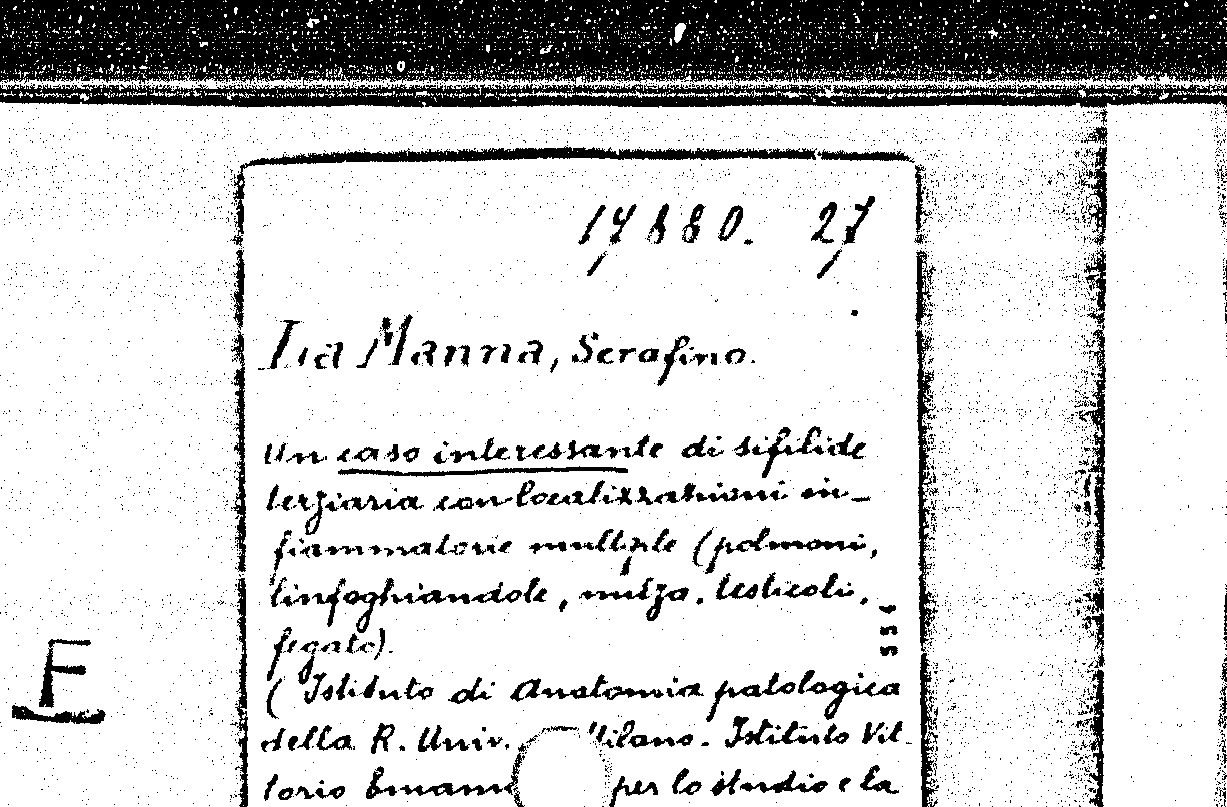 17880. 27
La Manna, Serafino.
Un caso interessante di sifilide
terziaria con localizzazioni in-
fiammatorie multiple (polmoni,
linfoghiandole, milza, testicoli,
fegato).
(Istituto di Anatomia patologica
della R. Univ. Milano. Istituto Vit-
torio Emanu per lo studio e la
F